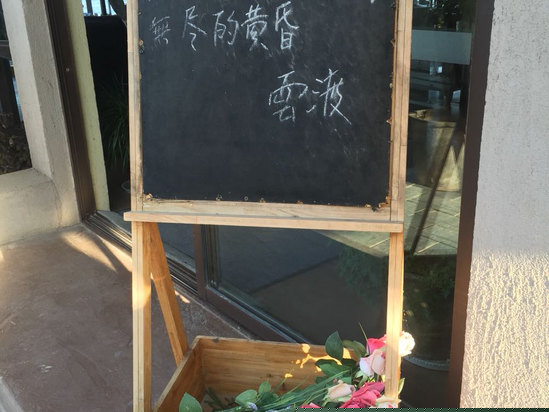 無尽的黄昏
雲波